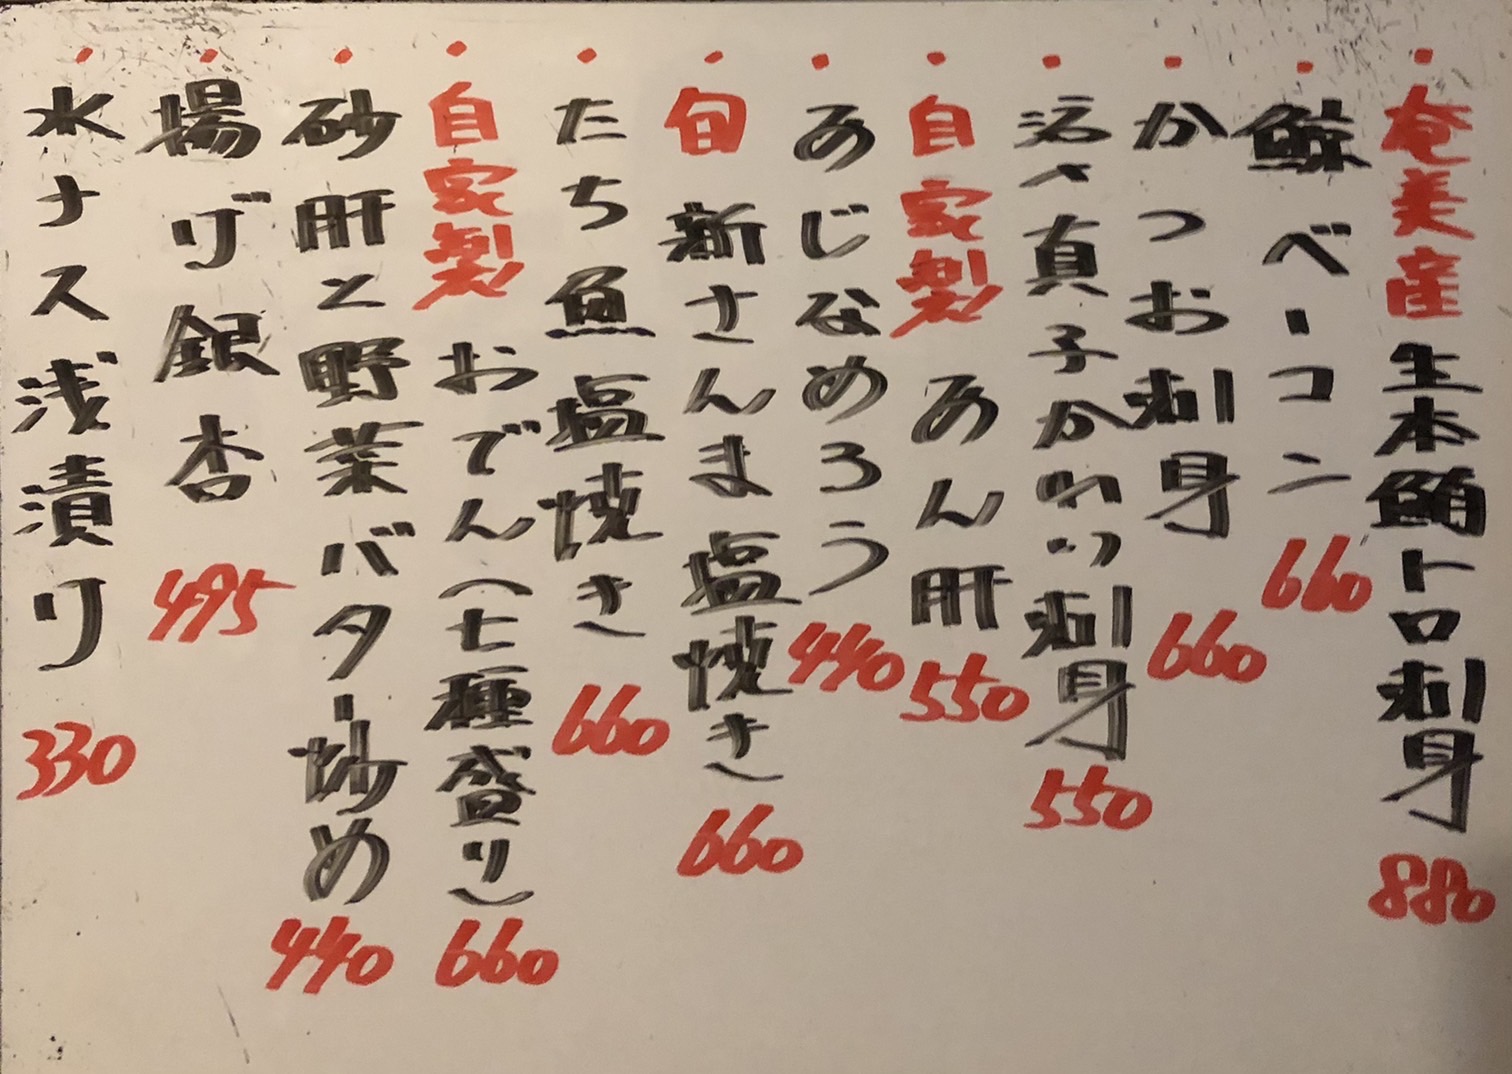 ・奄美産生本鮪トロ刺身 880
・鯨ベーコン 660
・かつお刺身 660
・活〆真子かれい刺身 550
・自家製あん肝 550
・あじなめろう 440
・旬新さんま塩焼き 660
・たち魚塩焼き 660
・自家製おでん(七種盛り) 660
・砂肝と野菜バター炒め 440
・揚げ銀杏 495
・水ナス浅漬り 330